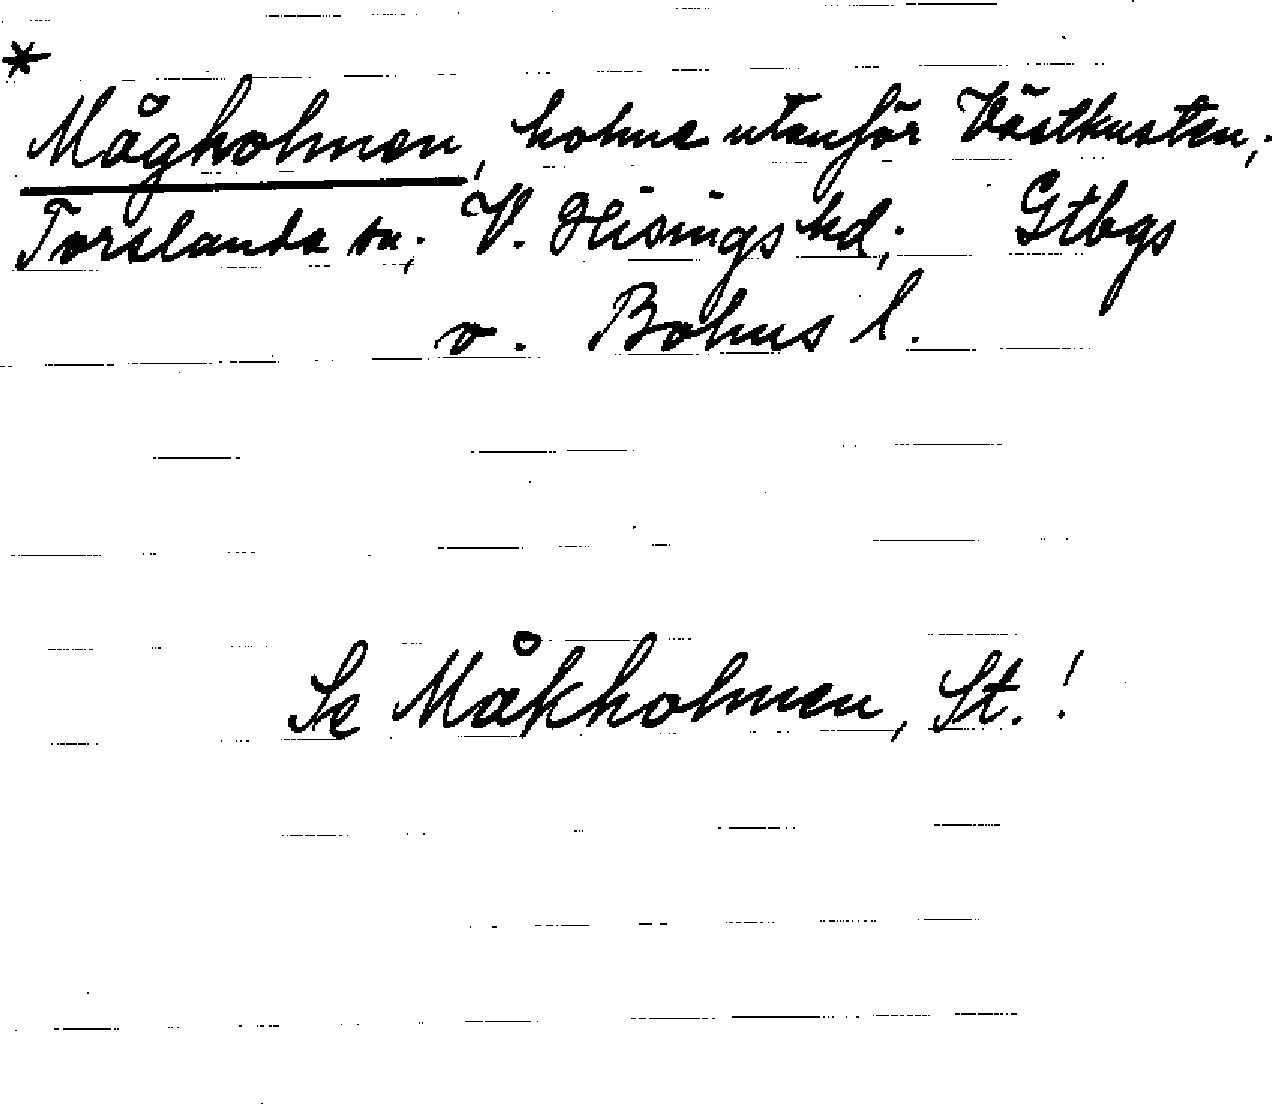 *
Mågholmen, holme utanför Västkusten,
Torslanda sn; V. Hisings hd; Gtbgs
o. Bohus l.
Se Måkholmen, St.!